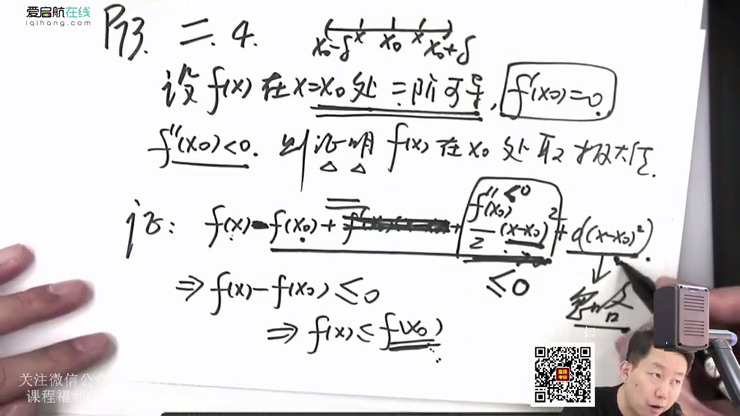 爱启航在线
iqihang.com
P93. 二. 4.
x₀-δ x x₀ x x₀+δ
设 f(x) 在 x=x₀ 处 二阶可导, f'(x₀)=0.
f''(x₀)<0. 则证明 f(x) 在 x₀ 处取极大值.
证: f(x)=f(x₀)+ + f''(x₀)/2 (x-x₀)² + o((x-x₀)²).
<0
≤0
⇒ f(x)-f(x₀)≤0
⇒ f(x)≤f(x₀)
关注微信公众
课程福利